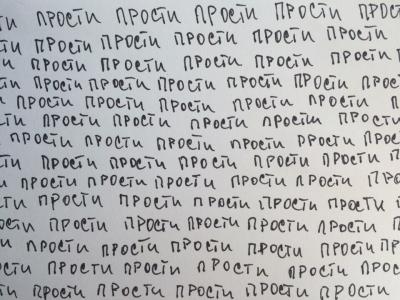 ти прости прости прости прости прост
прости прости прости прости прости
прости прости прости прости прос
прости прости прости прости прости прос
прости прости прости прости прости
прости прости прости прости прости
прости прости прости прости прости прос
прости прости прости прости прости
прости прости прости прости прости про
прости прости прости прости прости прости
прости прости прости прости прости
прости прости прости прости прости при
прости прости прости прости прости
прости прости прости прости прости